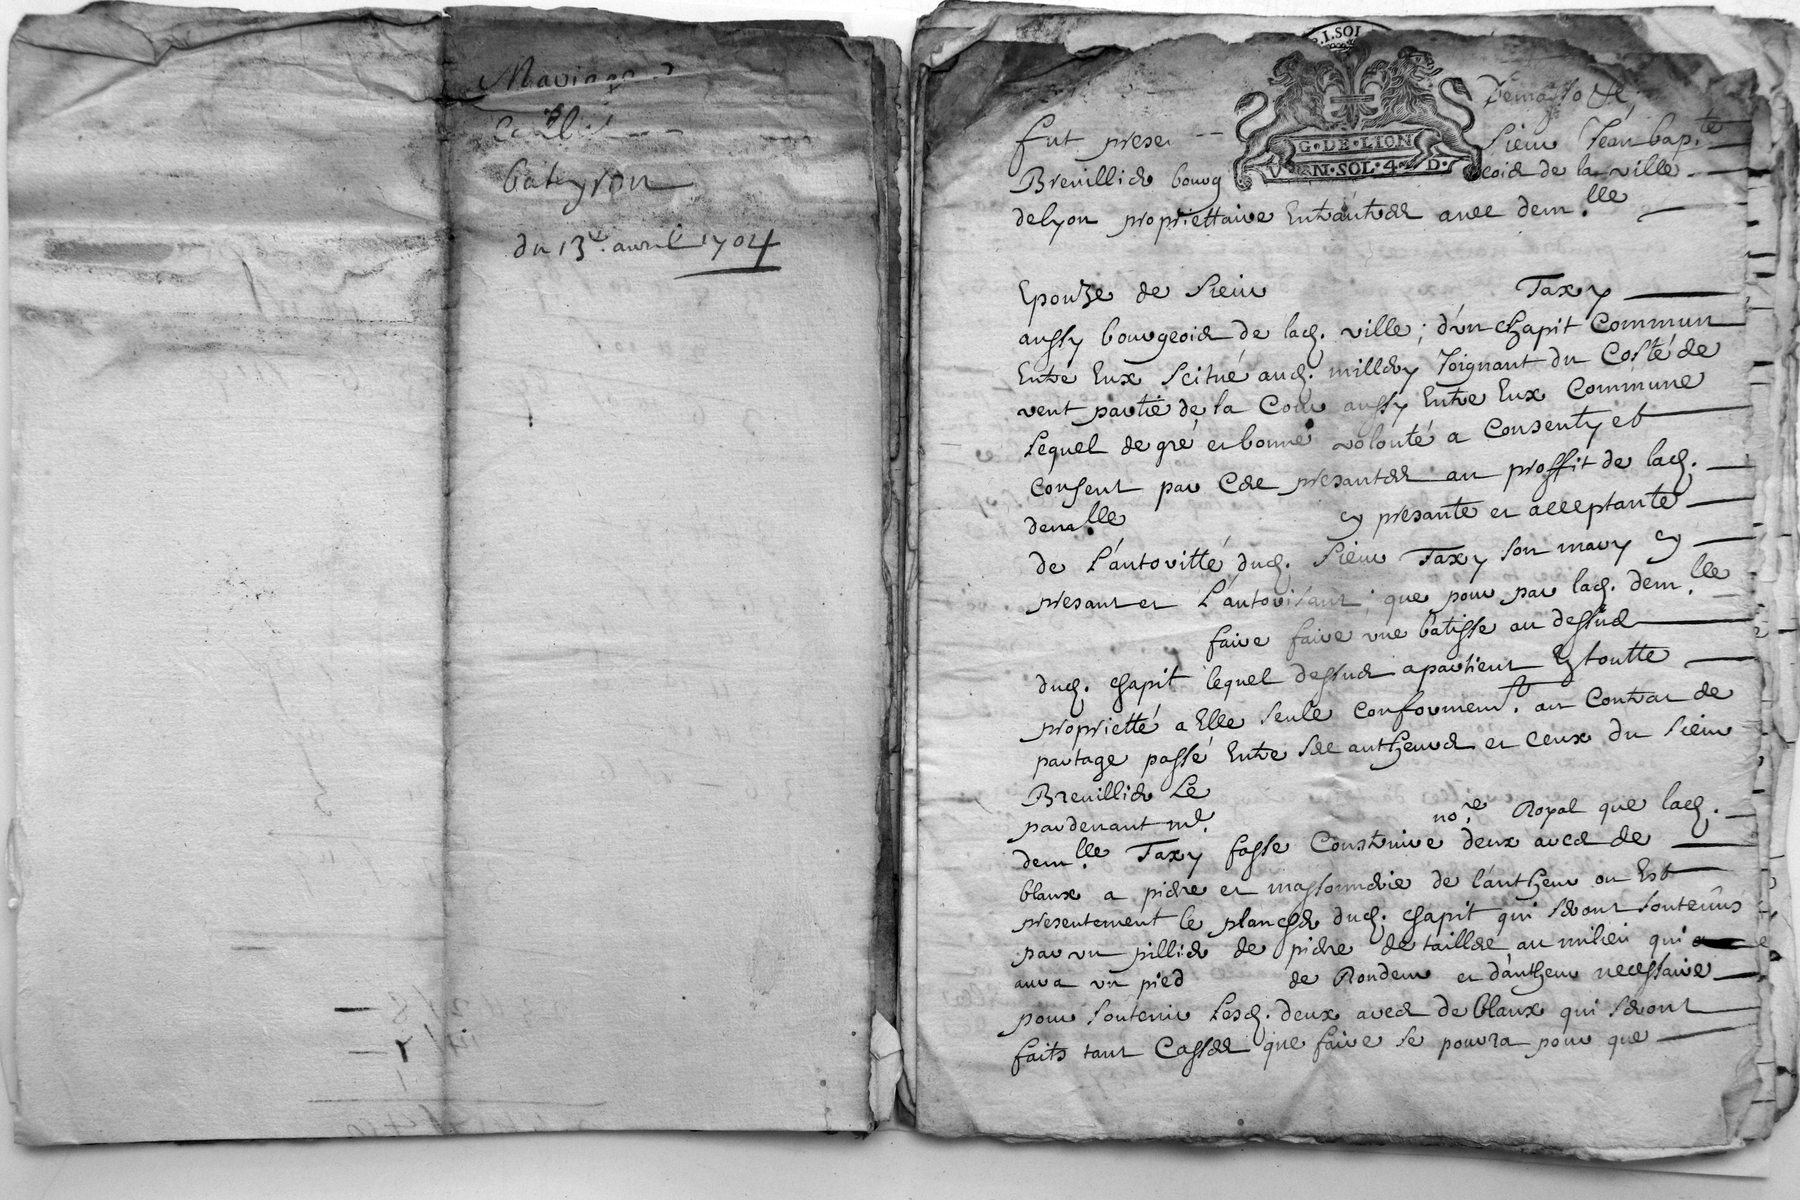 Mariage
bateyron
du 13e. avril 1704
G·DE·LION
V N·SOL·4 D·
fut prese Sieur Jean bap.te
Brenillier bourg eois de la ville
de lyon propriettaire Entautres avec dem.lle
Epouze de Sieur Taxy
aussy bourgeois de lad. ville; d'un chapit Commun
Entre Eux Scitué aud. millery Joignant du Costé de
vent partie de la Cour aussy Entre Eux Commune
Lequel de gré et bonne volonté a Consenty et
Consent par Ces presantes au proffit de lad.
dem.lle cy presante et acceptante
de L'autoritté dud. Sieur Taxy son mary cy
presant et L'autorisant; que pour par lad. dem.lle
faire faire une batisse au dessus
dud. chapit lequel dessus apartient En toutte
proprietté a Elle seule Conformemt. au Contrat de
partage passé Entre ses autheurs et Ceux du Sieur
Brenillier Le
pardevant me. nore. Royal que lad.
dem.lle Taxy fasse Construire deux arcs de
blanx a pierre et massonnerie de l'autheur ou Est
presentement le plancher dud. chapit qui seront soutenus
par un pillier de pierre de taillée au milieu qui
aura un pied de Rondeur et d'autheur necessaire
pour soutenir Lesd. deux arcs de blanx qui seront
faits tant Casses que faire se poura pour que